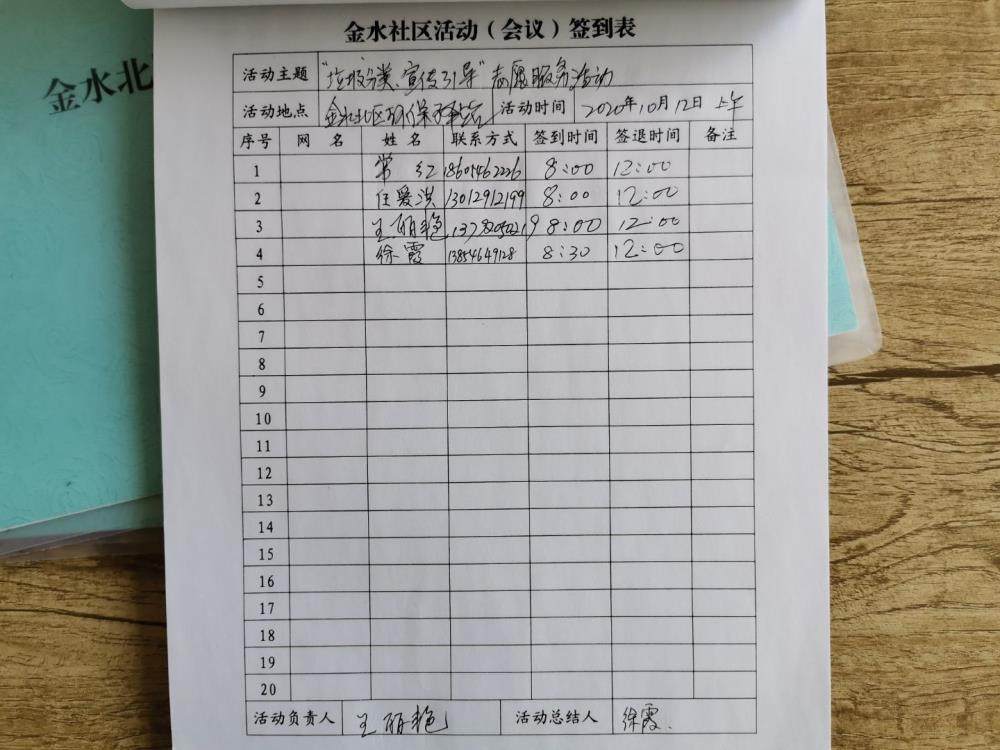 金水北
金水社区活动（会议）签到表
活动主题 "垃圾分类、宣传引导"志愿服务活动
活动地点 金水北区环保 活动时间 2020年10月12日 上午
序号 网 名 姓 名 联系方式 签到时间 签退时间 备注
1 常 红 18605462226 8:00 12:00
2 任爱洪 13012912199 8:00 12:00
3 王丽艳 8:00 12:00
4 徐霞 13854649128 8:30 12:00
5
6
7
8
9
10
11
12
13
14
15
16
17
18
19
20
活动负责人 王丽艳 活动总结人 徐霞.